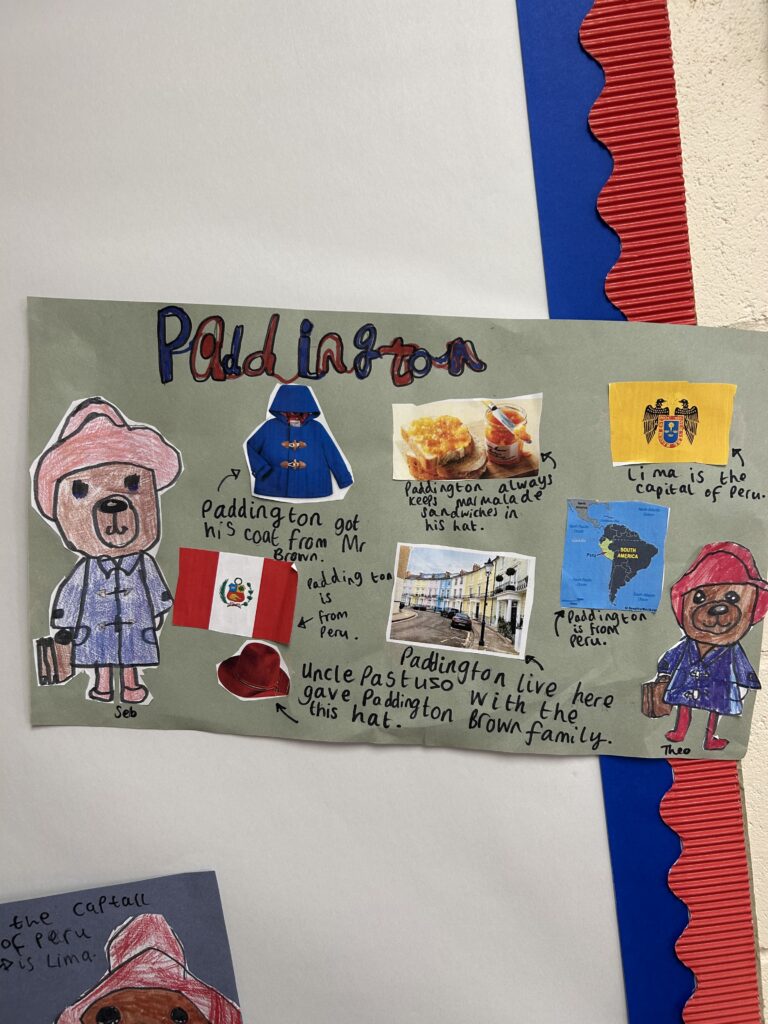 Paddington
Paddington got
his coat from Mr
Brown.
Paddington always
keeps marmalade
sandwiches in
his hat.
Lima is the
capital of Peru.
Padding ton
is
from
Peru.
SOUTH
AMERICA
Peru
Paddington
is from
Peru.
Uncle Pastuso
gave Paddington
this hat.
Paddington live here
with the
Brown family.
Seb
Theo
the captall
of Peru
is Lima.